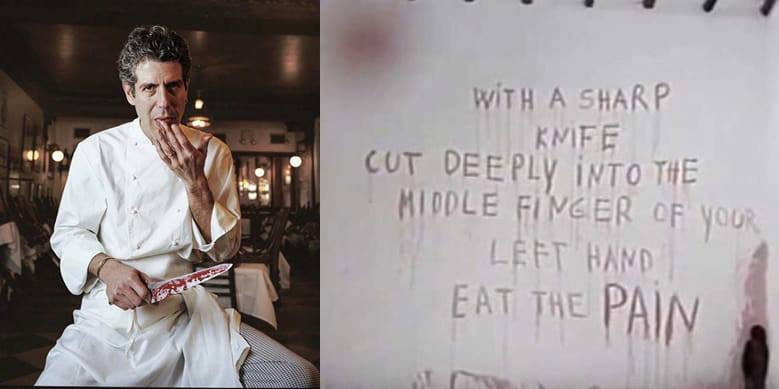 WITH A SHARP
KNIFE
CUT DEEPLY INTO THE
MIDDLE FINGER OF YOUR
LEFT HAND
EAT THE PAIN